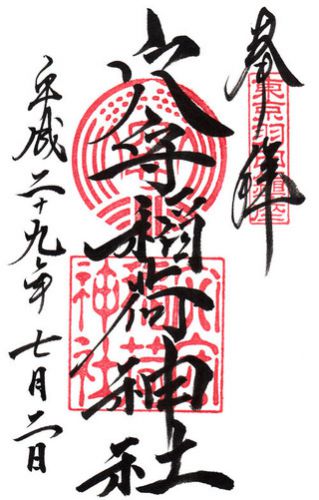 奉拝
東京羽田鎮座
穴守稲荷神社
穴守
稲荷
神社
平成二十九年七月二日